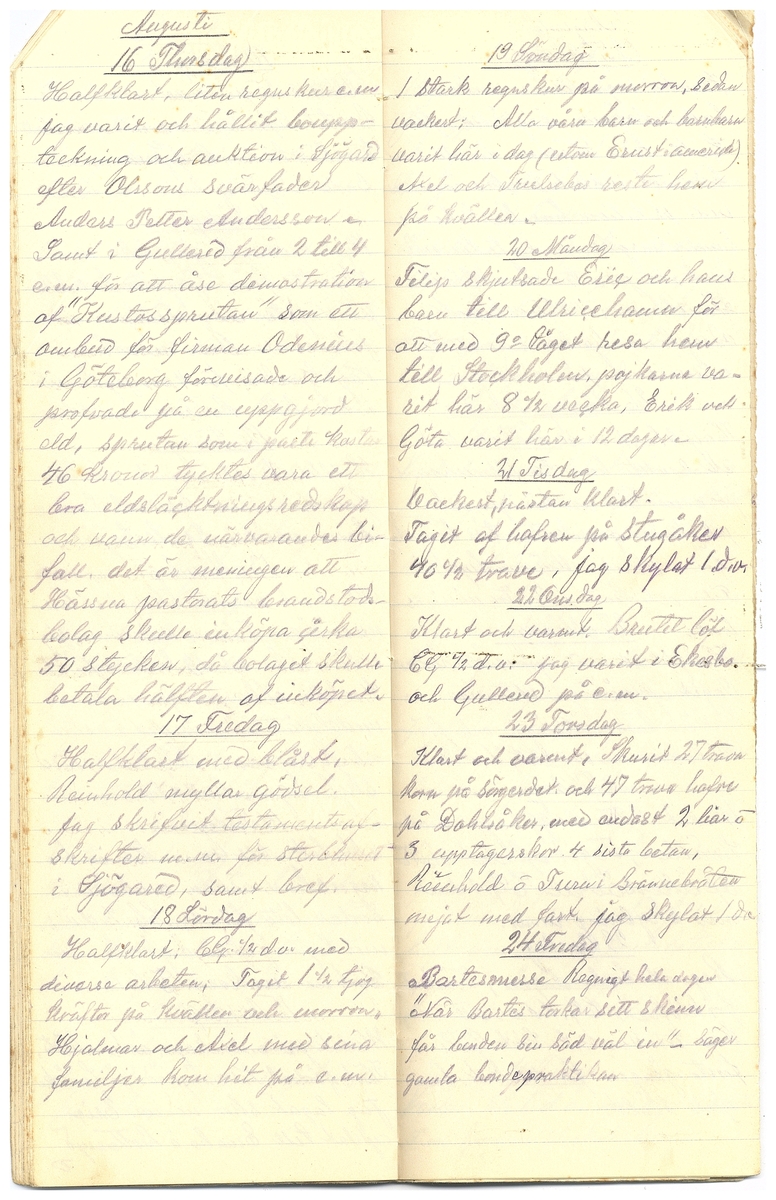 Augusti
16 Thorsdag
Halfklart, liten regnskur e.m
jag varit och hållit boupp-
teckning och auktion i Sjögared
efter Olssons svärfader
Anders Petter Andersson.
Samt i Gullered från 2 till 4
e.m. för att åse demostration
af "Kustossprutan" som ett
ombud för firman Odenius
i Göteborg förevisade och
profvade på en uppgjord
eld, sprutan som i parti kostar
46 kronor tycktes vara ett
bra eldsläckningsredskap
och vann de närvarandes bi-
fall. det är meningen att
Hässna pastorats brandstods-
bolag skulle inköpa cirka
50 stycken, då bolaget skulle
betala hälften af inköpet.
17 Fredag
Halfklart med blåst,
Reinhold myllar gödsel.
Jag skrifvit testamentsaf-
skrifter m.m. för sterbhuset
i Sjögared, samt bref.
18 Lördag
Halfklart; CG. 1/2 d.v. med
diverse arbeten; Tagit 1 1/2 tjog
kräftor på kvällen och morron.
Hjalmar och Axel med sina
familjer kom hit på e.m.
19 Söndag
1 stark regnskur på morron, sedan
vackert; Alla våra barn och barnbarn
varit här i dag (utom Ernst i amerika)
Axel och Trulsebos reste hem
på kvällen.
20 Måndag
Filip skjutsade Eric och hans
barn till Ulricehamn för
att med 9º tåget resa hem
till Stockholm, pojkarne va-
rit här 8 1/2 vecka, Erik och
Göta varit här i 12 dagar.
21 Tisdag
Vackert, nästan klart.
Tagit af hafren på Stugåker
40 1/2 trave, jag skylat 1 d.v.
22 Onsdag
Klart och varmt. Brutit löf
CG 1/2 d.v. jag varit i Ekesbo
och Gullered på e.m.
23 Torsdag
Klart och varmt, Skurit 27 trava
korn på Sörgerdet och 47 trava hafre
på Dahlsåker, med endast 2 liar o
3 upptagerskor 4 sista betan,
Reinhold o Ture i Brännebråten
mejat med fart. jag skylat 1 d.v
24 Fredag
Bartesmesse Regnigt hela dagen
"När Bartes torkar sitt skinn
får bonden sin säd väl in" säger
gamla bondepraktikan